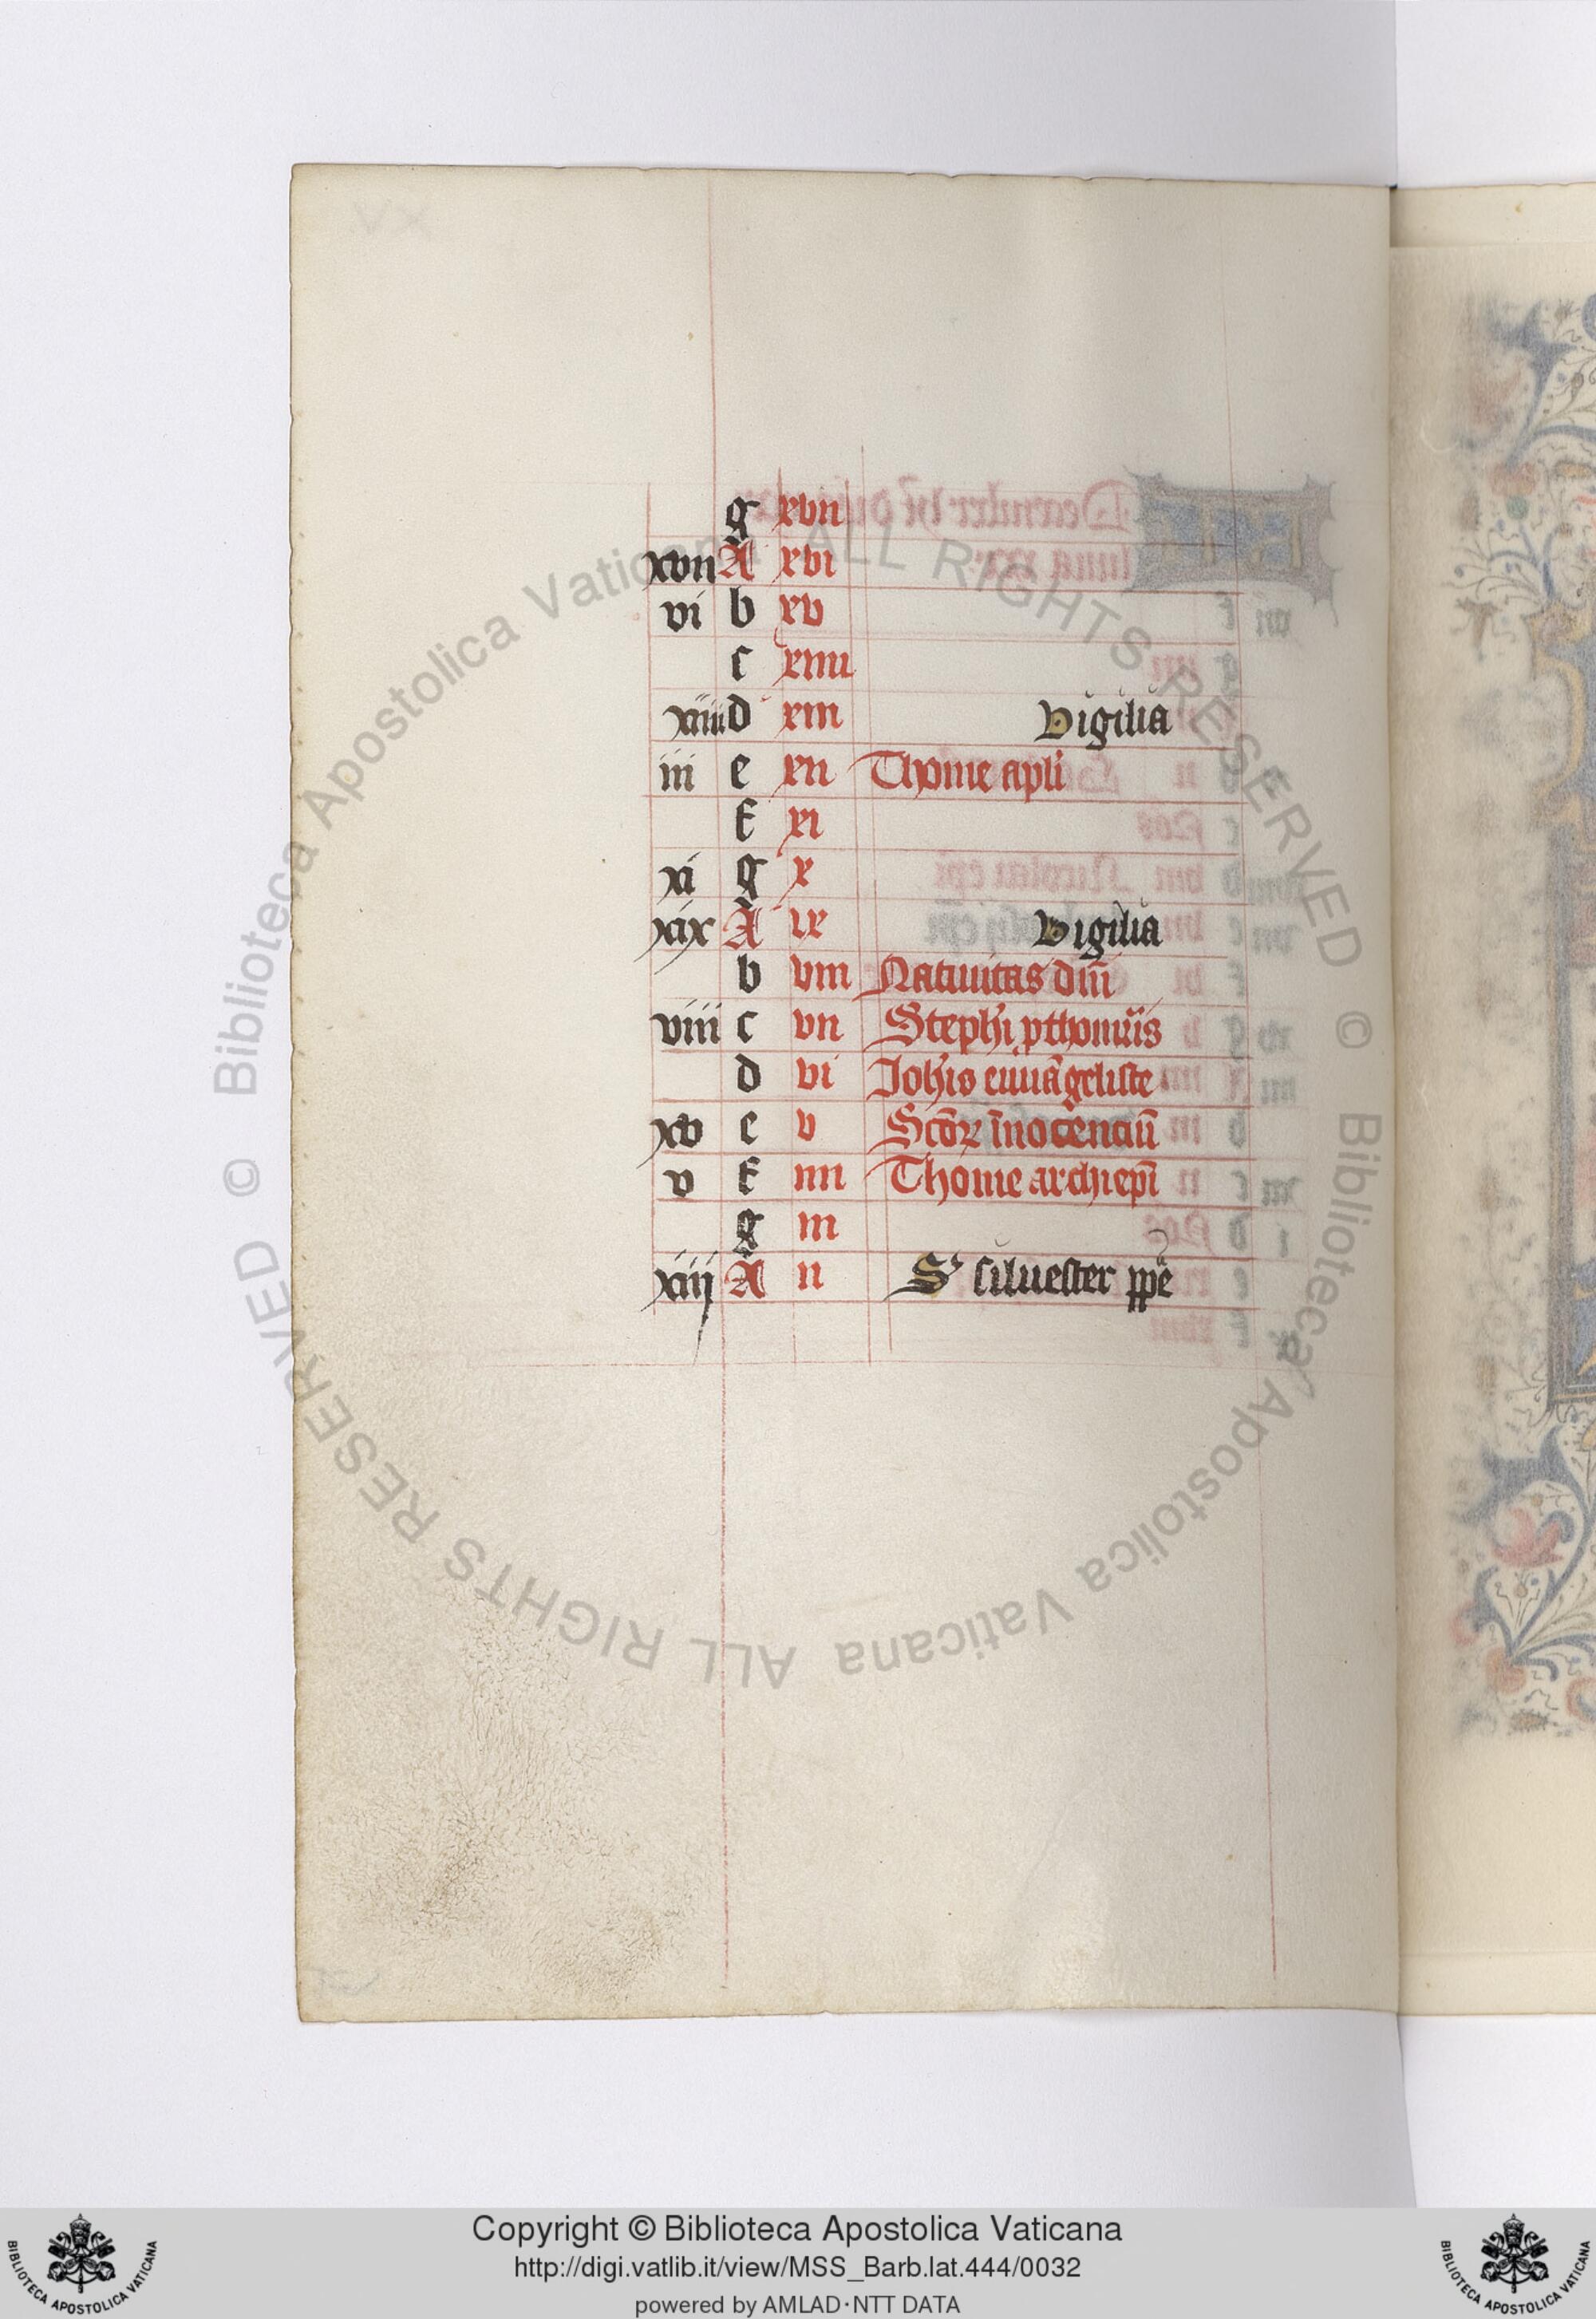 g xvii
xvii A xvi
vi b xv
c xiiii
xiiii d xiii Vigilia
iii e xii Thome apłi
f xi
xi g x
xix A ix Vigilia
b viii Natiuitas dñi
viii c vii Steph̄i ꝓthom̄r̄is
d vi Joh̄is euuãgeliste
xv e v Scōꝝ īnocenciū
v f iiii Thome archiep̄i
g iii
xiij A ii S' siluester pp̄e
© Biblioteca Apostolica Vaticana ALL RIGHTS RESERVED © Biblioteca Apostolica Vaticana ALL RIGHTS RESERVED
Copyright © Biblioteca Apostolica Vaticana
http://digi.vatlib.it/view/MSS_Barb.lat.444/0032
powered by AMLAD·NTT DATA
BIBLIOTECA APOSTOLICA VATICANA
BIBLIOTECA APOSTOLICA VATICANA